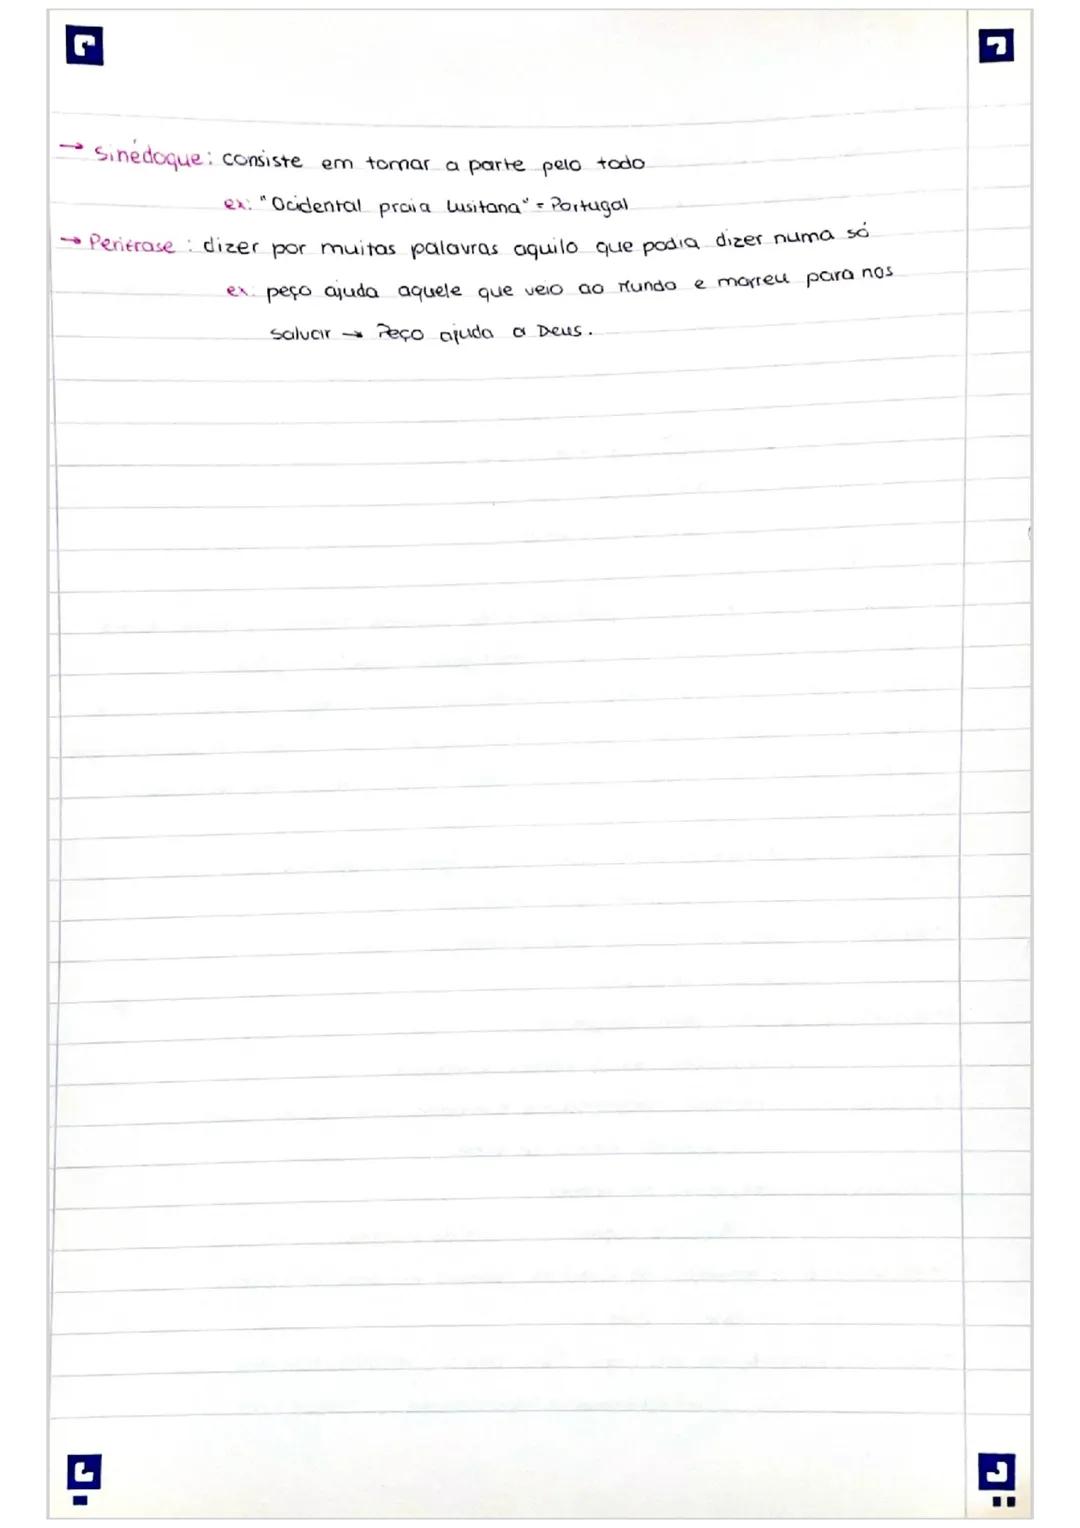 → Sinédoque: consiste em tomar a parte pelo todo
ex: "Ocidental praia Lusitana" = Portugal
→ Perífrase: dizer por muitas palavras aquilo que podia dizer numa só
ex: peço ajuda aquele que veio ao Mundo e morreu para nos
salvar → Peço ajuda a Deus.